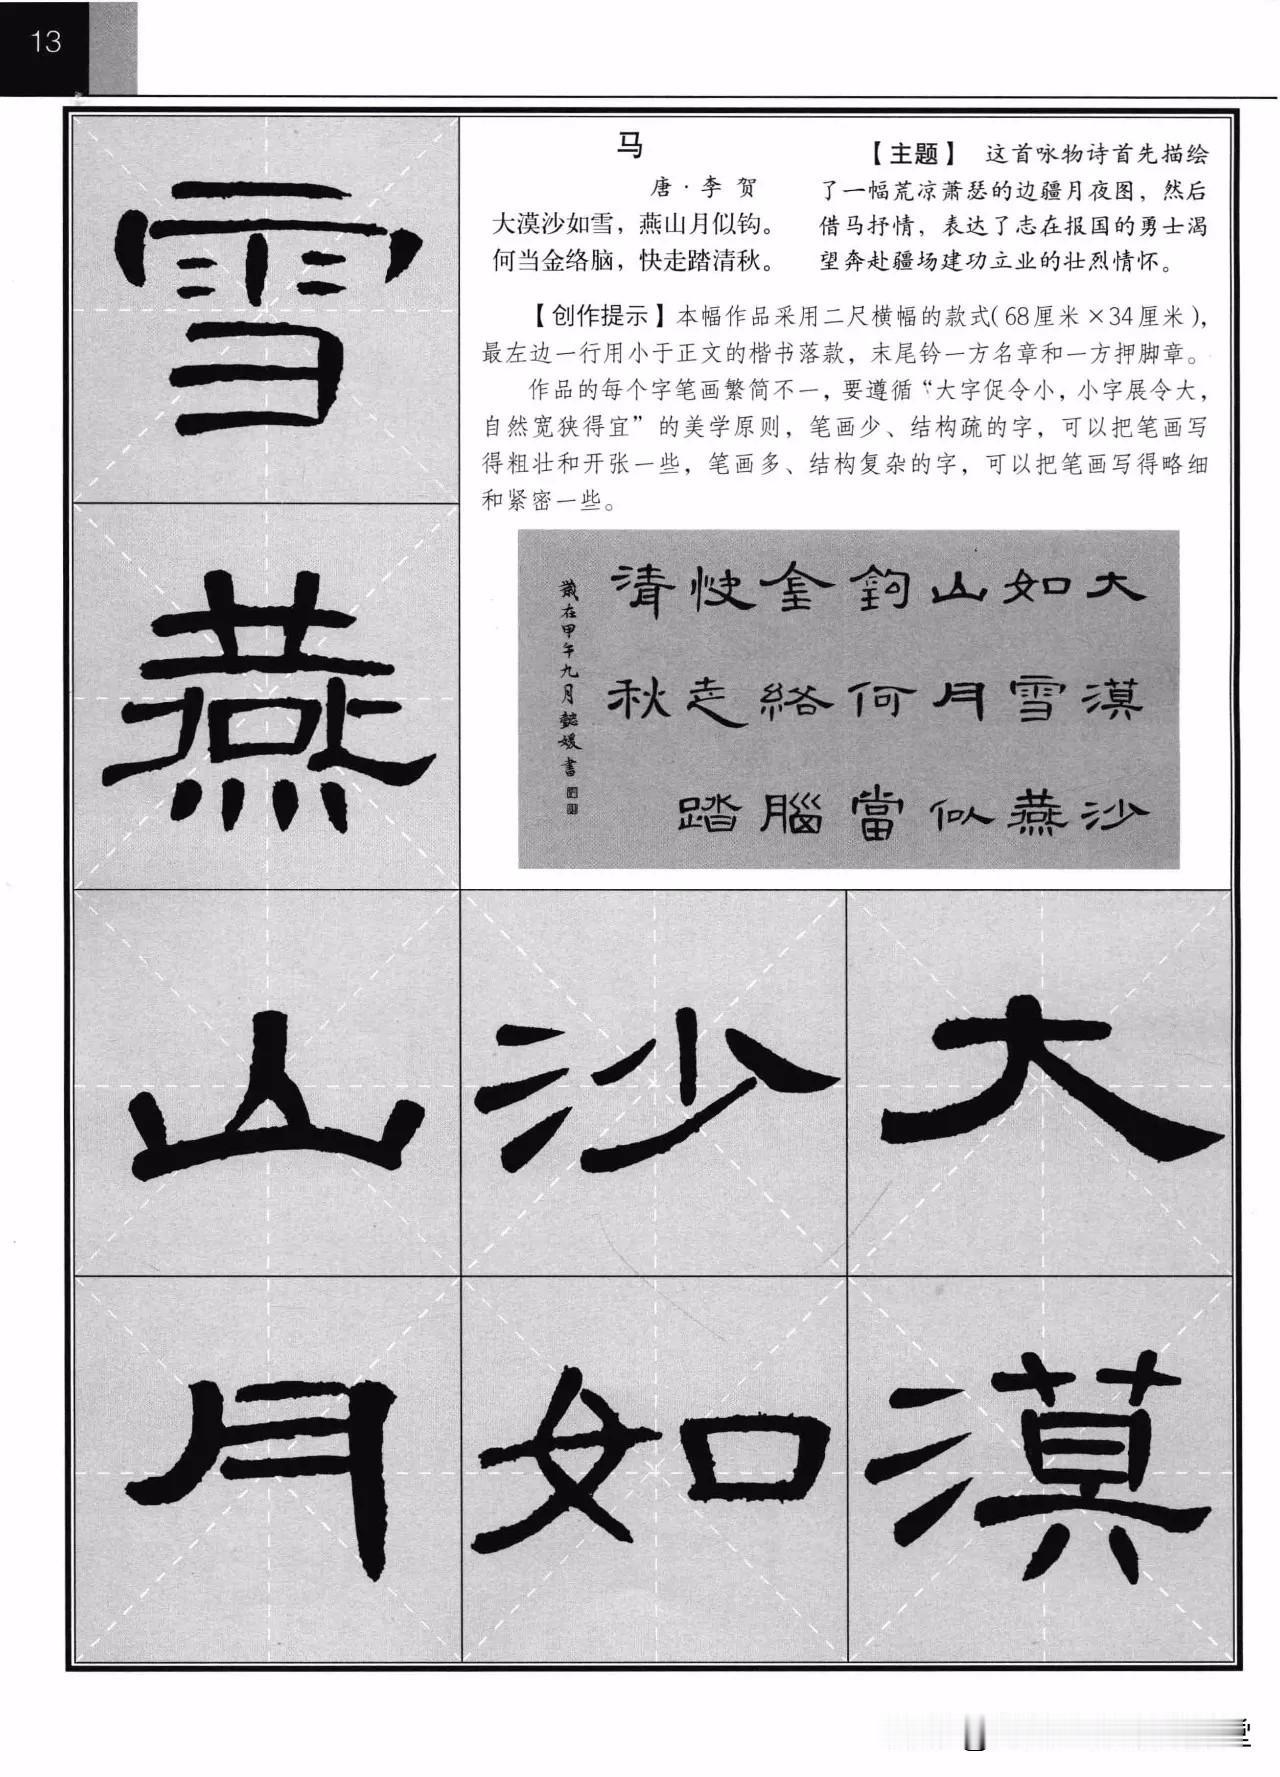 13
马
唐·李 贺
大漠沙如雪，燕山月似钩。
何当金络脑，快走踏清秋。
【主题】 这首咏物诗首先描绘
了一幅荒凉萧瑟的边疆月夜图，然后
借马抒情，表达了志在报国的勇士渴
望奔赴疆场建功立业的壮烈情怀。
【创作提示】本幅作品采用二尺横幅的款式(68厘米×34厘米)，
最左边一行用小于正文的楷书落款，末尾钤一方名章和一方押脚章。
作品的每个字笔画繁简不一，要遵循“大字促令小，小字展令大，
自然宽狭得宜”的美学原则，笔画少、结构疏的字，可以把笔画写
得粗壮和开张一些，笔画多、结构复杂的字，可以把笔画写得略细
和紧密一些。
大漠沙
如雪燕
山月似
鉤何當
金絡腦
快走踏
清秋
歲在甲午九月懿媛書
大
漠
沙
如
雪
燕
山
月